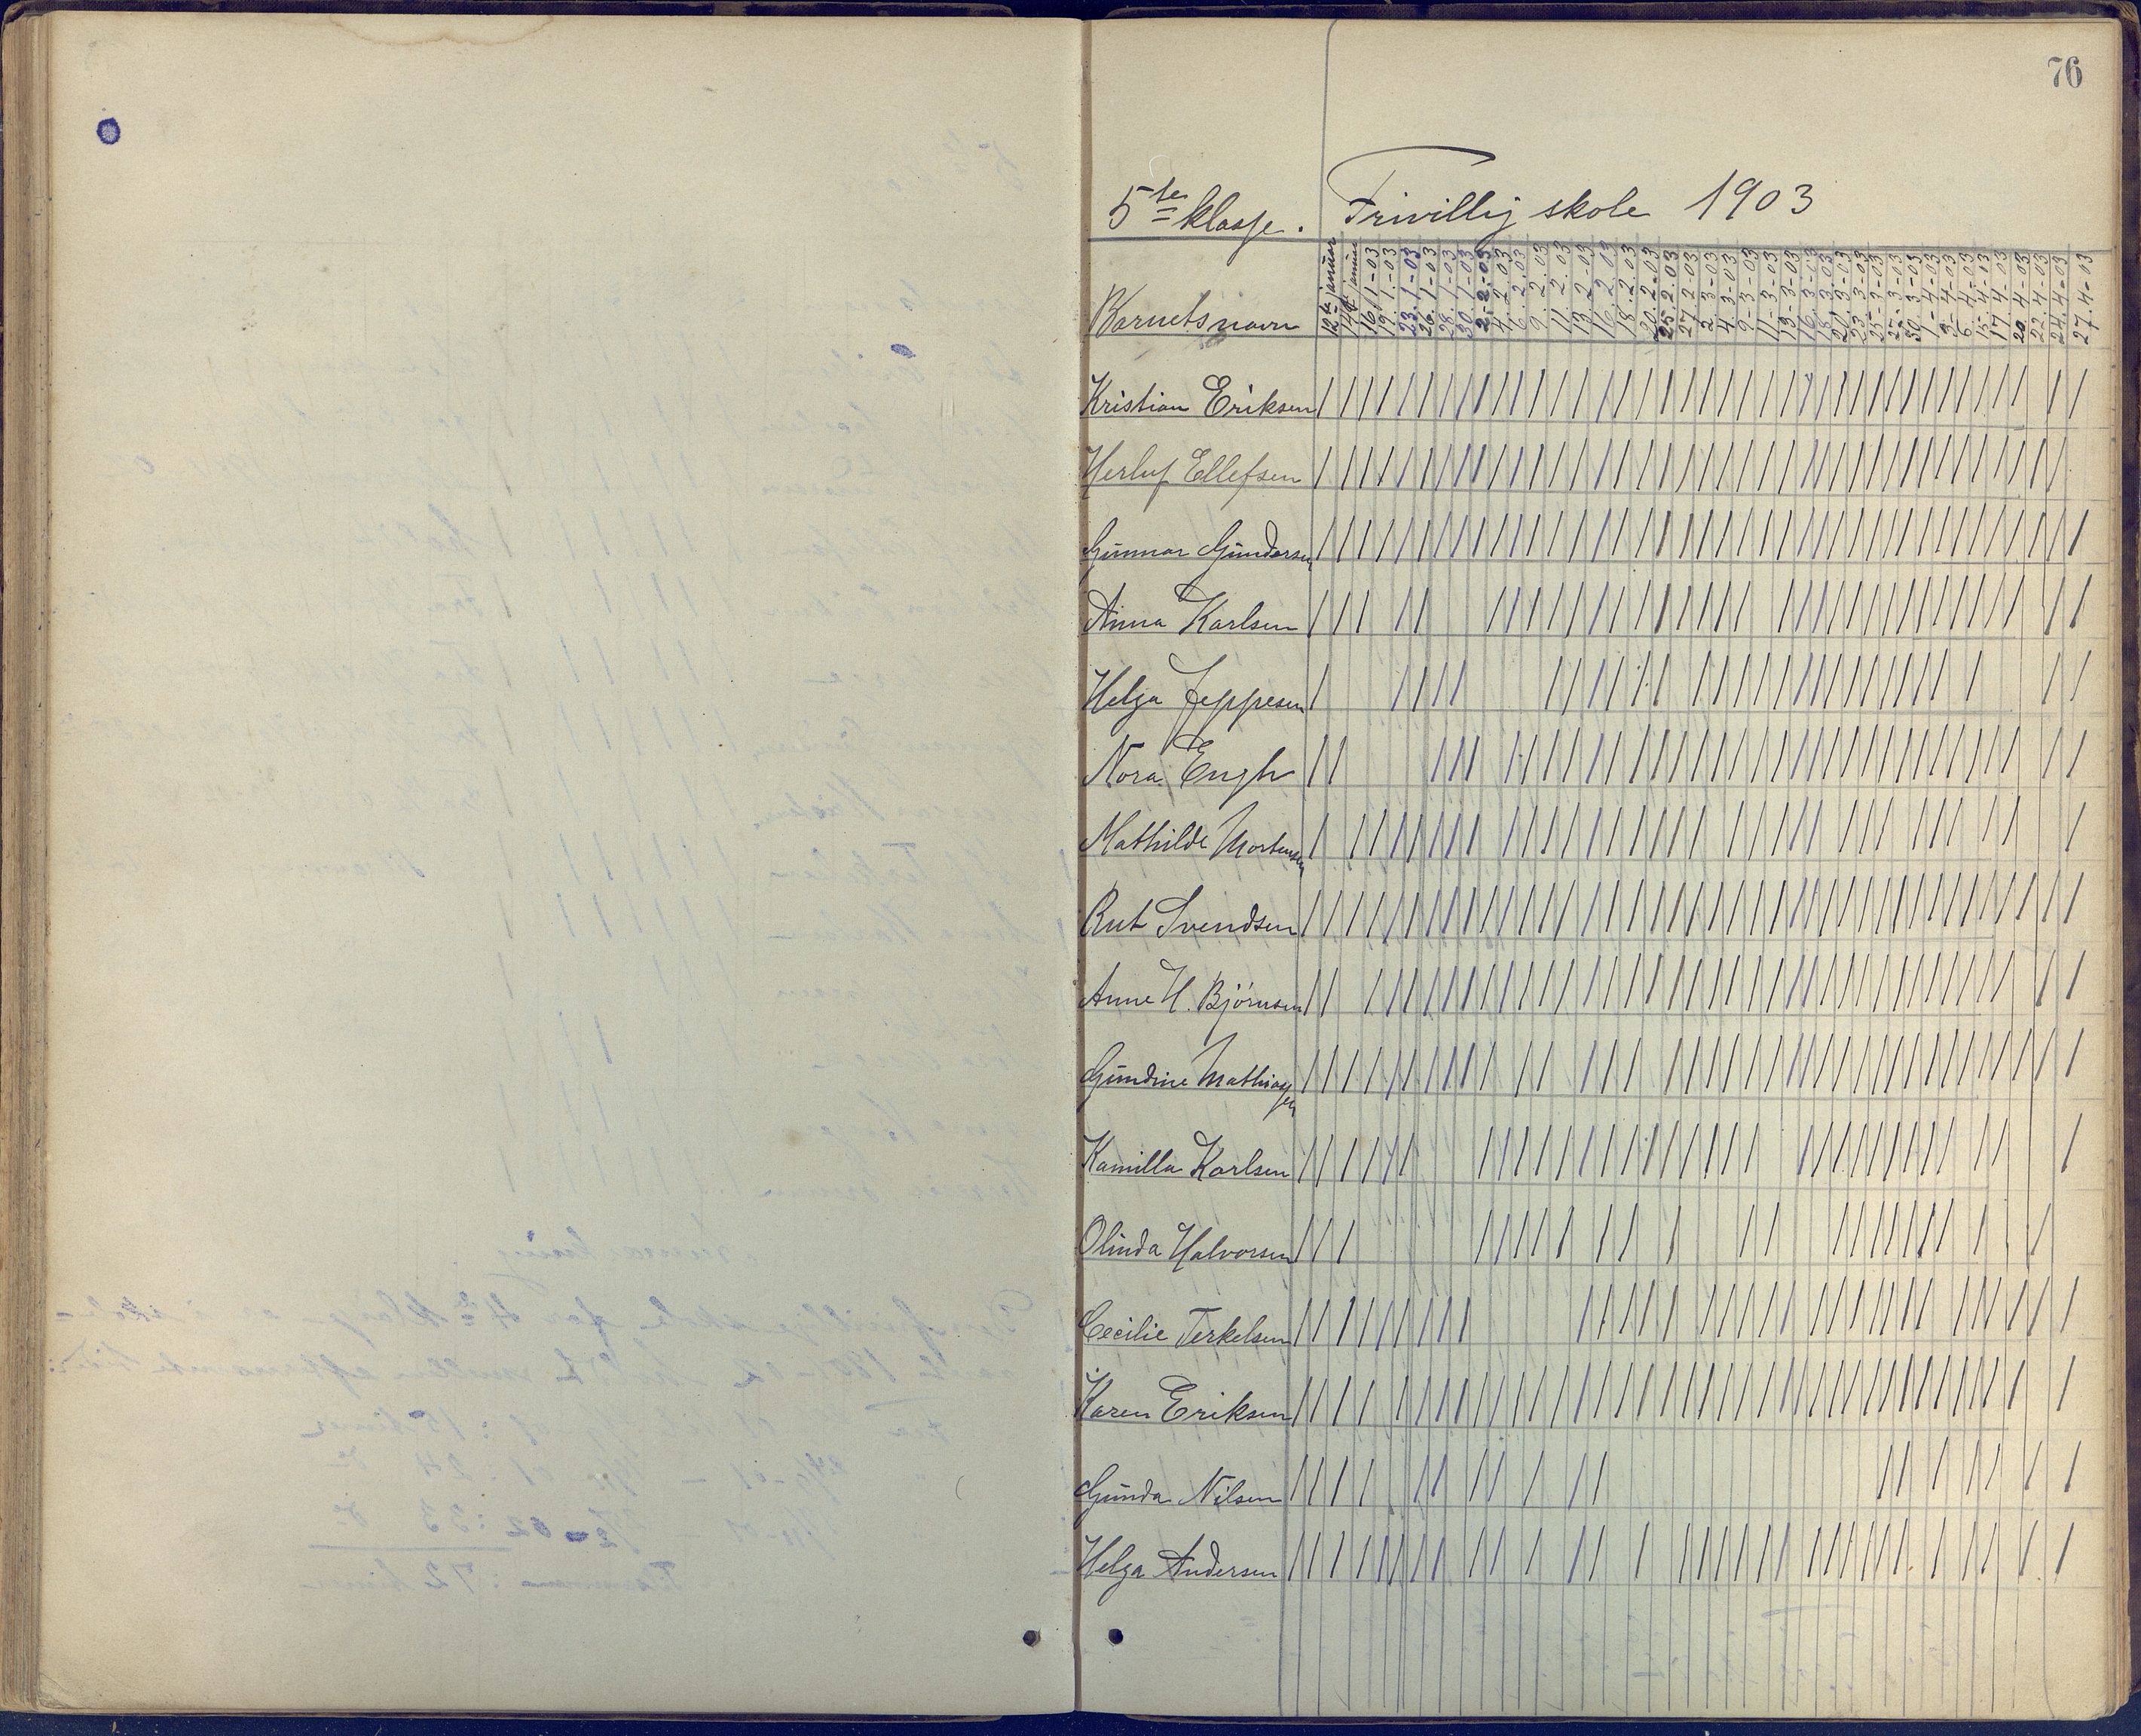 76
5te klasse. Frivillig skole 1903
Barnets navn 12te januar 14de januar 16.1-03 19.1.-03 23.1-03 26.1-03 28.1-03 30.1-03 2.2-03 4.2.03 6.2.03 9.2.03 11.2.03 13.2.-03 16.2.03 18.2.03 20.2.03 25.2.03 27.2.03 2.3-03 4.3-03 9-3-03 11-3-03 13-3-03 16.3-03 18.3-03 20.3-03 23.3-03 25-3-03 27.3-03 30.3-03 1-4-03 3-4-03 6-4-03 15-4-03 17.4-03 20.4-03 22.4-03 24.4-03 27.4-03
Kristian Eriksen
Herluf Ellefsen
Gunnar Gundersen
Anna Karlsen
Helga Jeppesen
Nora Engh
Mathilde Mortensen
Rut Svendsen
Anne H. Bjørnsen
Gundine Mathiassen
Kamilla Karlsen
Olinda Halvorsen
Cecilie Terkelsen
Karen Eriksen
Gunda Nilsen
Helga Andersen